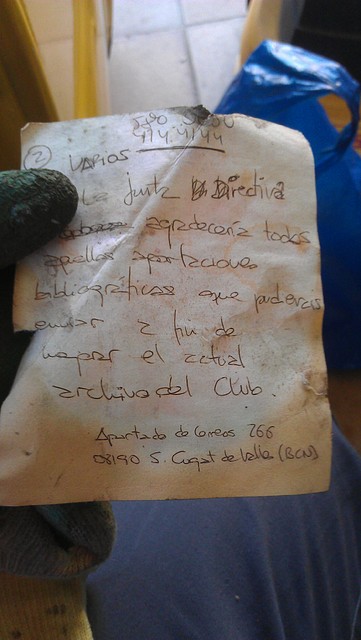 414.4144
2 VARIOS
La junta Directiva
agradeceria todas
aquellas aportaciones
bibliográficas que pudierais
enviar a fin de
mejorar el actual
archivo del Club.
Apartado de Correos 266
08190 S. Cugat del Valles (BCN)